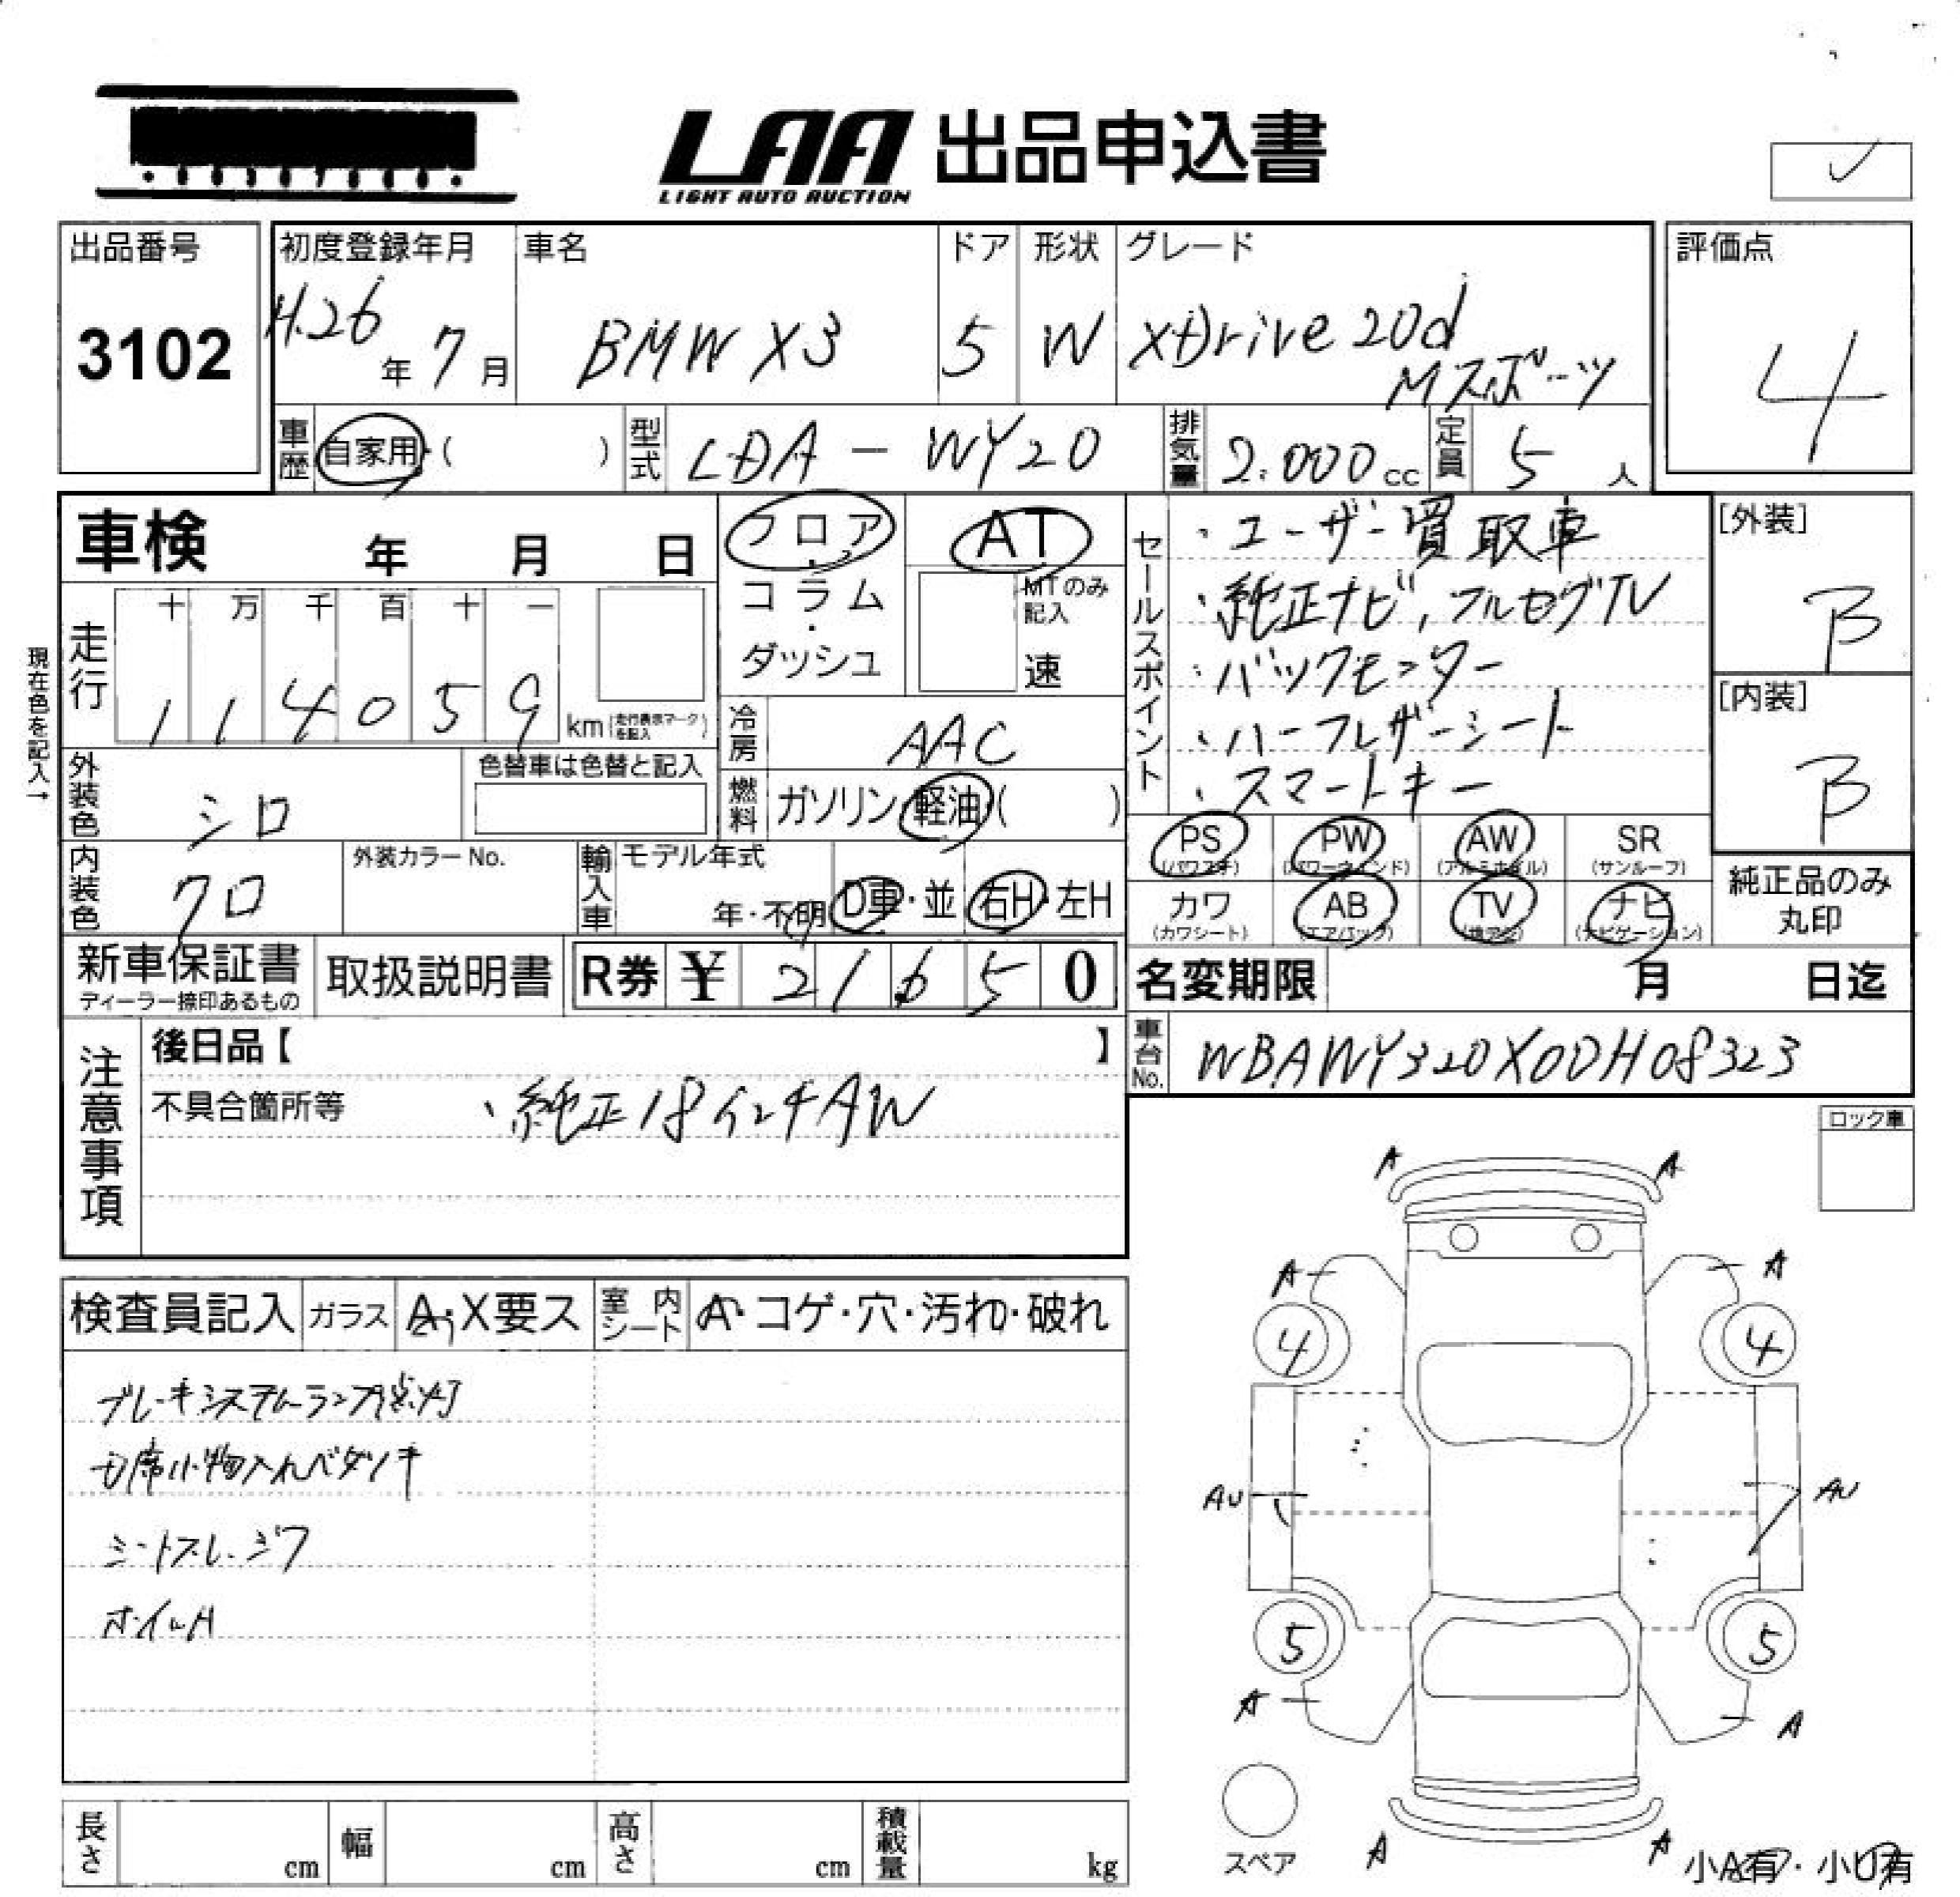 LAA 出品申込書
LIGHT AUTO AUCTION
出品番号
3102
初度登録年月
H.26年7月
車名
BMW X3
ドア
5
形状
W
グレード
xDrive 20d
Mスポーツ
評価点
4
車歴
自家用・( )
型式
LDA - WY20
排気量
2.000 cc
定員
5 人
車検 年 月 日
現在色を記入→
走行
十 万 千 百 十 一
1 1 4 0 5 9 km (走行表示マークを記入)
外装色
シロ
色替車は色替と記入
内装色
クロ
外装カラーNo.
輸入車
モデル年式
年・不明
D車・並
右H・左H
フロア・コラム・ダッシュ
AT
MTのみ記入
速
冷房
AAC
燃料
ガソリン・軽油・( )
セールスポイント
・ユーザー買取車
・純正ナビ, フルセグTV
・バックモニター
・ハーフレザーシート
・スマートキー
[外装]
B
[内装]
B
PS (パワステ)
PW (パワーウインド)
AW (アルミホイル)
SR (サンルーフ)
カワ (カワシート)
AB (エアバック)
TV
ナビ (ナビゲーション)
純正品のみ丸印
新車保証書
ディーラー捺印あるもの
取扱説明書
R券 ¥ 2 1 6 5 0
名変期限 月 日迄
車台No.
WBAWY320X00H08323
注意事項
後日品【 】
不具合箇所等
、純正18インチAW
ロック車
検査員記入
ガラス
A・X要ス
室内シート
A・コゲ・穴・汚れ・破れ
ブレーキシステムランプ点灯
D席小物入れベタツキ
シートスレ、シワ
ホイルA
A A
A A
4 4
AU AU
5 5
A A
スペア
A A
小A有・小U有
長さ cm
幅 cm
高さ cm
積載量 kg